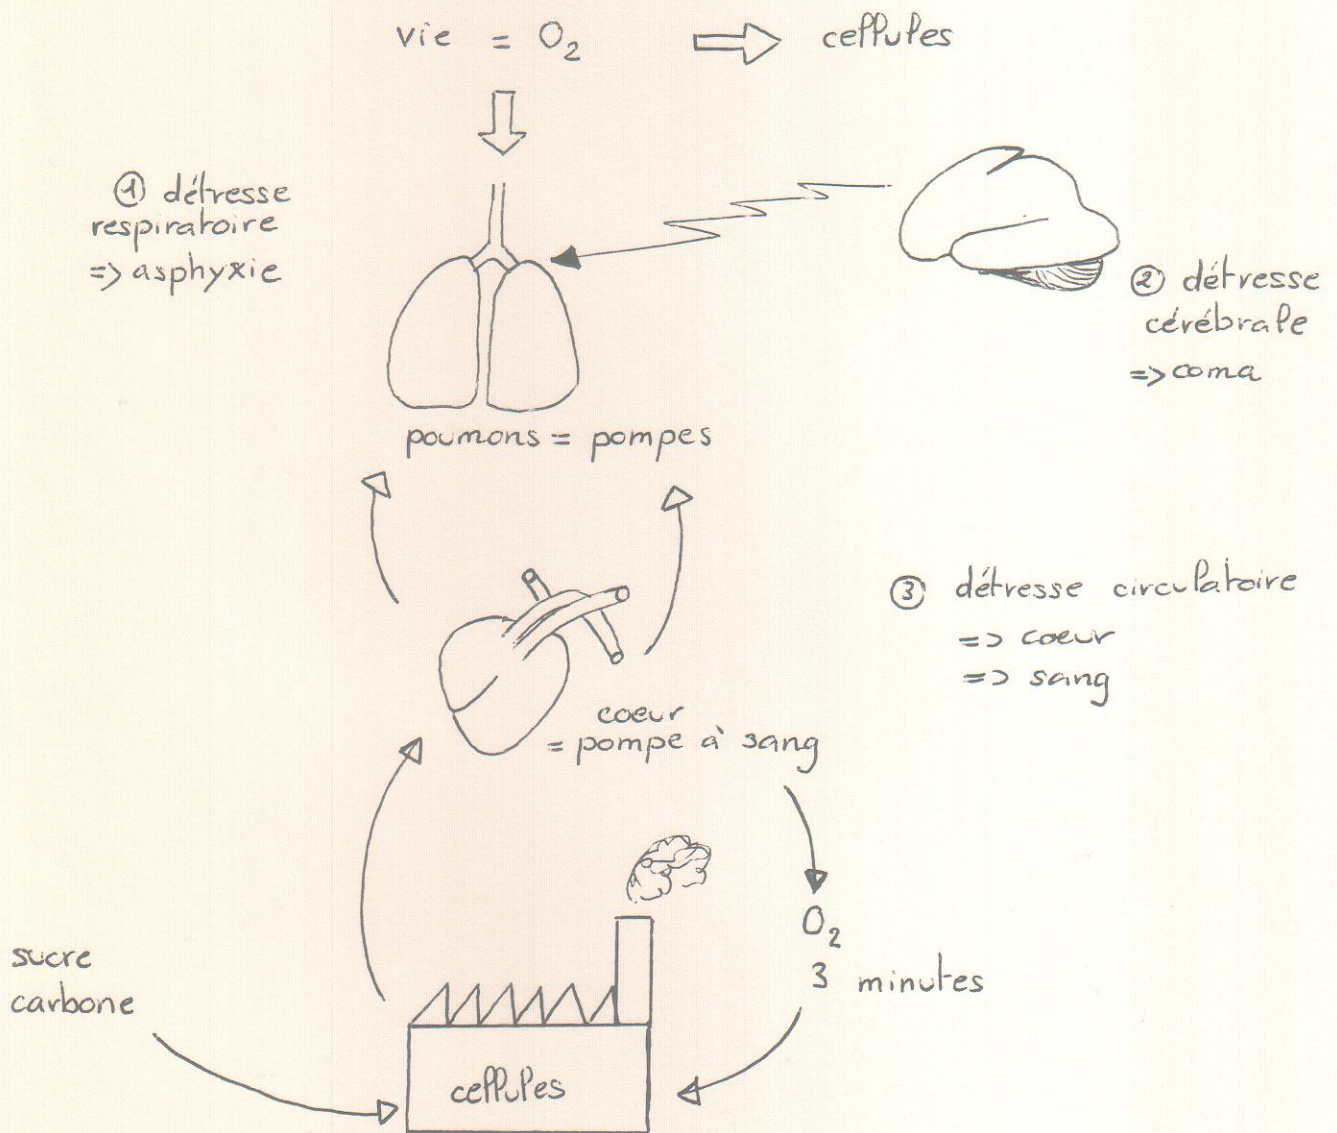 vie = O₂ ⇒ cellules
① détresse
respiratoire
=> asphyxie
② détresse
cérébrale
=> coma
poumons = pompes
③ détresse circulatoire
=> coeur
=> sang
coeur
= pompe à sang
O₂
3 minutes
sucre
carbone
cellules